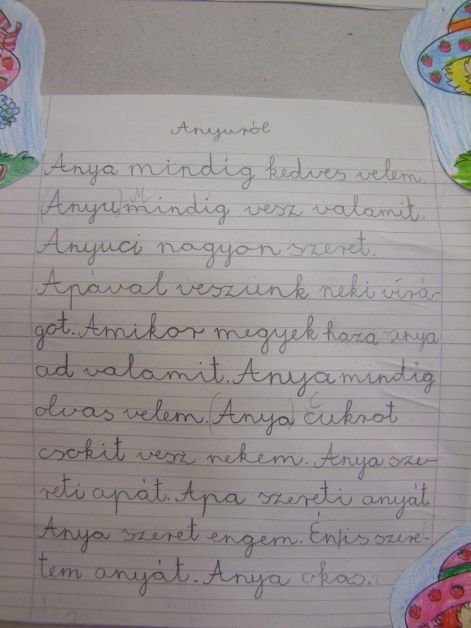 Anyuról
Anya mindig kedves velem.
(Anyu) mindig vesz valamit.
Anyuci nagyon szeret.
Apával veszünk neki virá-
got. Amikor megyek haza anya
ad valamit. Anya mindig
olvas velem. (Anya) cukrot
csokit vesz nekem. Anya sze-
reti apát. Apa szereti anyát.
Anya szeret engem. Én is szere-
tem anyát. Anya okos.